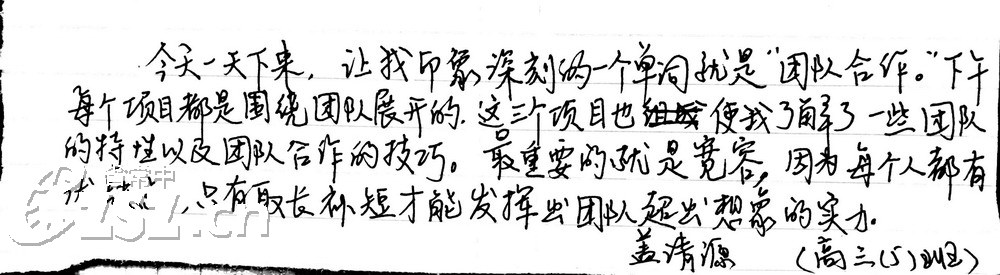 今天一天下来,让我印象深刻的一个单词就是“团队合作。”下午
每个项目都是围绕团队展开的.这三个项目也使我了解了一些团队
的特性以及团队合作的技巧。最重要的就是宽容,因为每个人都有
,只有取长补短才能发挥出团队超出想象的实力.
盖清源 (高三(5)班)